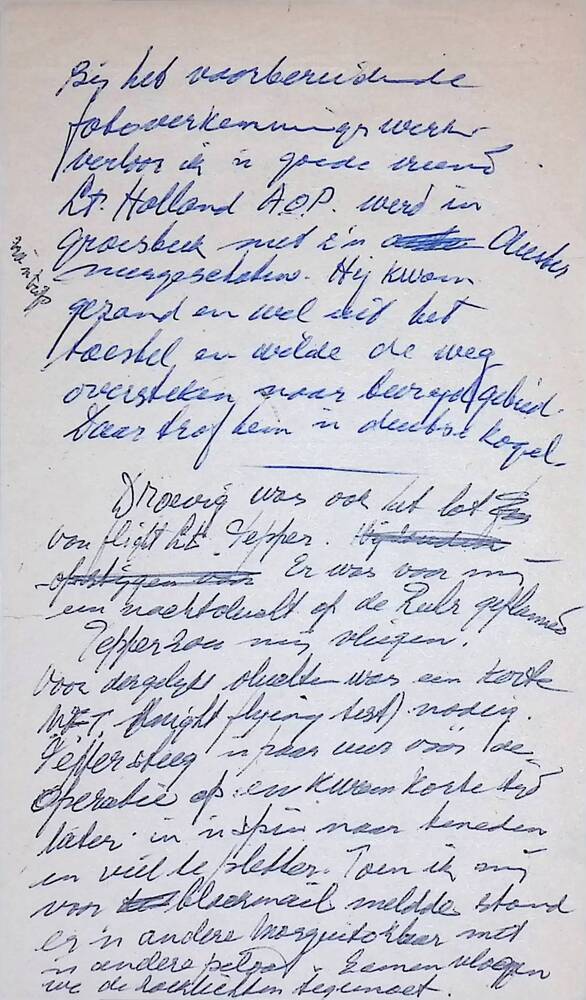 Bij het voorbereidende
fotoverkennings werk
verloor ik 'n goede vriend
Lt. Holland A.O.P. werd in
Groesbeek met z'n Auster
neergeschoten. Hij kwam
gezond en wel uit het
toestel en wilde de weg
oversteken naar bevrijd gebied.
Daar trof hem 'n duitse kogel.
Droevig was ook het lot
van flight Lt. Pepper.
Er was voor mij
een nachtvlucht op de Ruhr gepland
Pepper zou mij vliegen.
Voor dergelijke vluchten was een korte
N.F.T. (night flying test) nodig.
Pepper steeg 'n paar uur vóór de
operatie op en kwam korte tijd
later in 'n spin naar beneden
en viel te pletter. Toen ik mij
voor meldde stond
er 'n andere Mosquito klaar met
'n andere piloot. Samen vlogen
we de tegemoet.